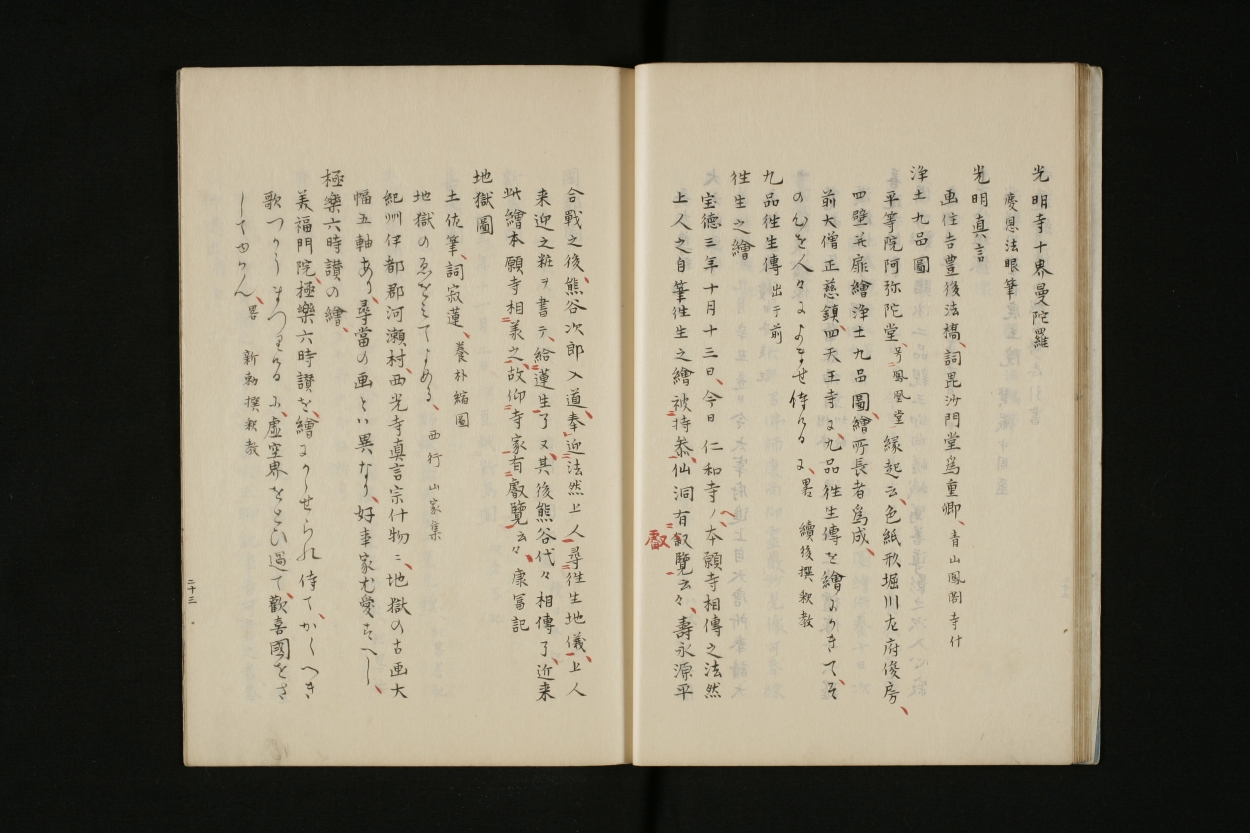 光明寺十界曼陀羅
慶恩法眼筆
光明真言
画住吉豊後法橋、詞毘沙門堂為重卿、青山鳳閣寺什
浄土九品圖
平等院阿弥陀堂、号鳳凰堂縁起云、色紙形堀川左府俊房、
四壁并扉繪浄土九品圖、繪所長者為成、
前大僧正慈鎮、四天王寺に、九品徃生傳を繪にかきて、そ
のむを人々によませ侍ける に、畧 續後撰釈教
九品徃生傳 出于前
徃生之繪
宝徳三年十月十三日、今日 仁和寺ノ本願寺相傳之法然
上人之自筆徃生之繪被持恭、仙洞有叡覽云々、壽永源平
叡
合戰之後、熊谷次郎入道奉迎法然上人尋徃生地儀、上人
来迎之粧ヲ書テ、給蓮生了又其後熊谷代々相傳了、近来
此繪本願寺相義之、故仰寺家有叡覽云々、康冨記
地獄圖
土佐筆、詞寂蓮、養朴縮圖
地獄のゑをみてよめる、西行山家集
紀州伊都郡河瀬村、西光寺真言宗什物ニ、地獄の古画大
幅五軸あり、尋當の画とハ異なり、好事家尤愛すへし、
極樂六時讃の繪、
美福門院、極樂六時讃を、繪にかゝせられ侍て、かくへき
歌つかうまつりける に、虚空界をとひ過て、歡喜國をさ
してゆかん、畧 新勅撰釈教
二十三